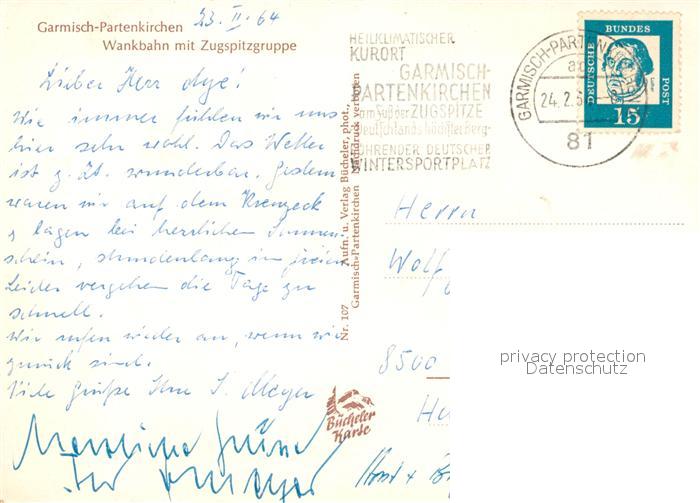 23. II. 64
Garmisch-Partenkirchen
Wankbahn mit Zugspitzgruppe
Lieber Herr
Wie immer fühlen wir uns
hier sehr wohl. Das Wetter
ist z. Zt. wunderbar. Gestern
waren wir auf dem Kreuzeck
lagen bei herrlichem Sonnen-
schein, stundenlang im freien
Leider vergehen die Tage zu
schnell.
Wir rufen wieder an, wenn wir
zurück sind.
Viele Grüße Ihre I. Meyer
Herzliche Grüße
Ihr
Nr. 107 Aufn. u. Verlag Bücheler, phot.,
Garmisch-Partenkirchen Nachdruck verboten
Bücheler
Karte
HEILKLIMATISCHER
KURORT
GARMISCH-
PARTENKIRCHEN
am Fuß der ZUGSPITZE
Deutschlands höchster Berg-
FÜHRENDER DEUTSCHER
WINTERSPORTPLATZ
GARMISCH-PARTEN
24.2.6
81
DEUTSCHE BUNDES POST
15
Herrn
Wolf
8500
privacy protection
Datenschutz